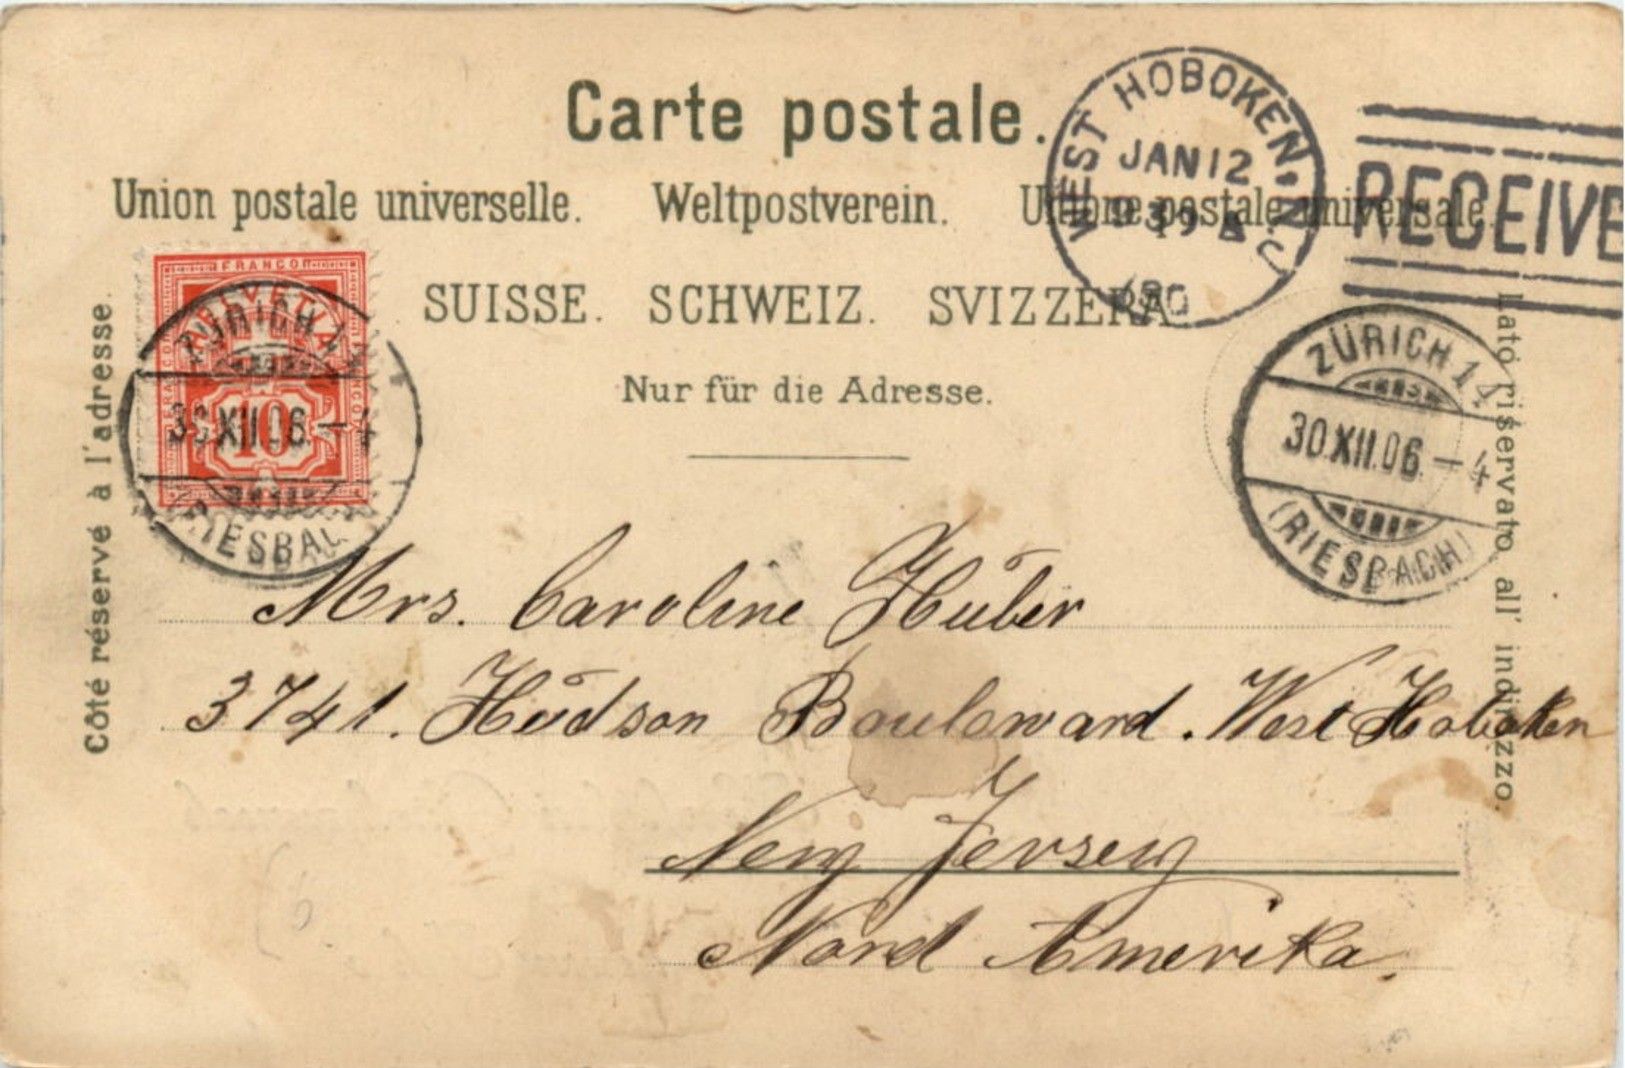 Carte postale.
Union postale universelle. Weltpostverein. Unione postale universale.
SUISSE. SCHWEIZ. SVIZZERA.
Nur für die Adresse.
Côté réservé à l'adresse.
Lato riservato all' indirizzo.
FRANCO
HELVETIA
10
ZÜRICH 14
30.XII.06.-4
(RIESBACH)
WEST HOBOKEN. N.J.
JAN 12
RECEIVE
ZÜRICH 14
30.XII.06.-4
(RIESBACH)
Mrs. Caroline Huber
3741. Hudson Bouleward. West Hoboken
New Jersey
Nord Amerika.